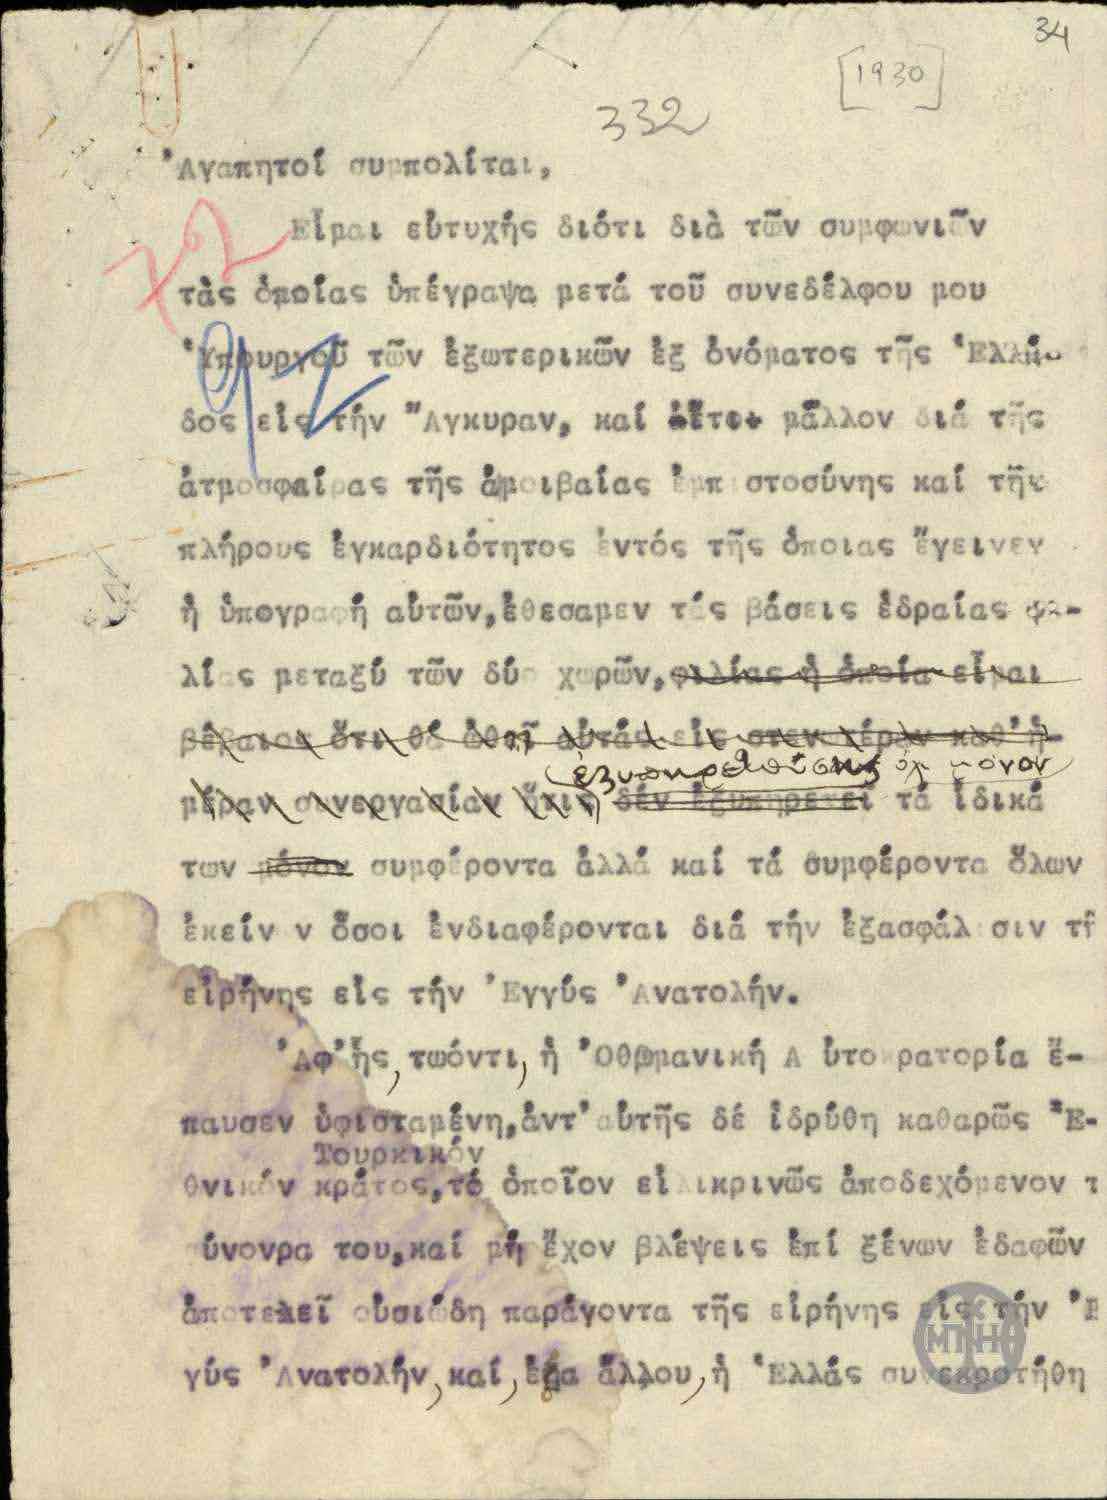 34
[1930]
332
Ἀγαπητοί συμπολίται,
Εἶμαι εὐτυχής διότι διὰ τῶν συμφωνιῶν
τὰς ὁποίας ὑπέγραψα μετά τοῦ συνεδέλφου μου
Ὑπουργοῦ τῶν ἐξωτερικῶν ἐξ ὀνόματος τῆς Ἑλλά-
δος εἰς τήν Ἄγκυραν, καί ἔτι μᾶλλον διά τῆς
ἀτμοσφαίρας τῆς ἀμοιβαίας ἐμπιστοσύνης καί τῆς
πλήρους ἐγκαρδιότητος ἐντός τῆς ὁποιας ἔγεινεν
ἡ ὑπογραφή αὐτῶν, ἐθεσαμεν τάς βάσεις ἑδραίας φι-
λίας μεταξύ τῶν δύο χωρῶν, φιλίας ἡ ὁποία εἶμαι
βέβαιος ὅτι θά ὠθεῖ αὐτάς εἰς στενοτέραν καθ'ἡ-
ἐξυπηρετούσης ὄχι μόνον
μέραν συνεργασίαν ἥτις δέν ἐξυπηρετεί τά ἰδικά
των μόνον συμφέροντα ἀλλά καί τά συμφέροντα ὅλων
ἐκείν ν ὅσοι ἐνδιαφέρονται διά τήν ἐξασφάλισιν τῆ
εἰρήνης εἰς τήν Ἐγγύς Ἀνατολήν.
Ἀφ'ἧς, τωόντι, ἡ Ὀθωμανική Α ὐτοκρατορία ἔ-
παυσεν ὑφισταμένη, ἀντ'αὐτῆς δέ ἱδρύθη καθαρῶς Ἐ-
Τουρκικόν
θνικόν κράτος, τό ὁποῖον εἰλικρινῶς ἀποδεχόμενον τ
σύνορα του, καί μή ἔχον βλέψεις ἐπί ξένων ἐδαφῶν
ἀποτελεῖ οὐσιώδη παράγοντα τῆς εἰρήνης εἰς τήν Ἐ
γύς Ἀνατολήν, καί, ἐξ ἄλλου, ἡ Ἑλλάς συνεκροτήθη